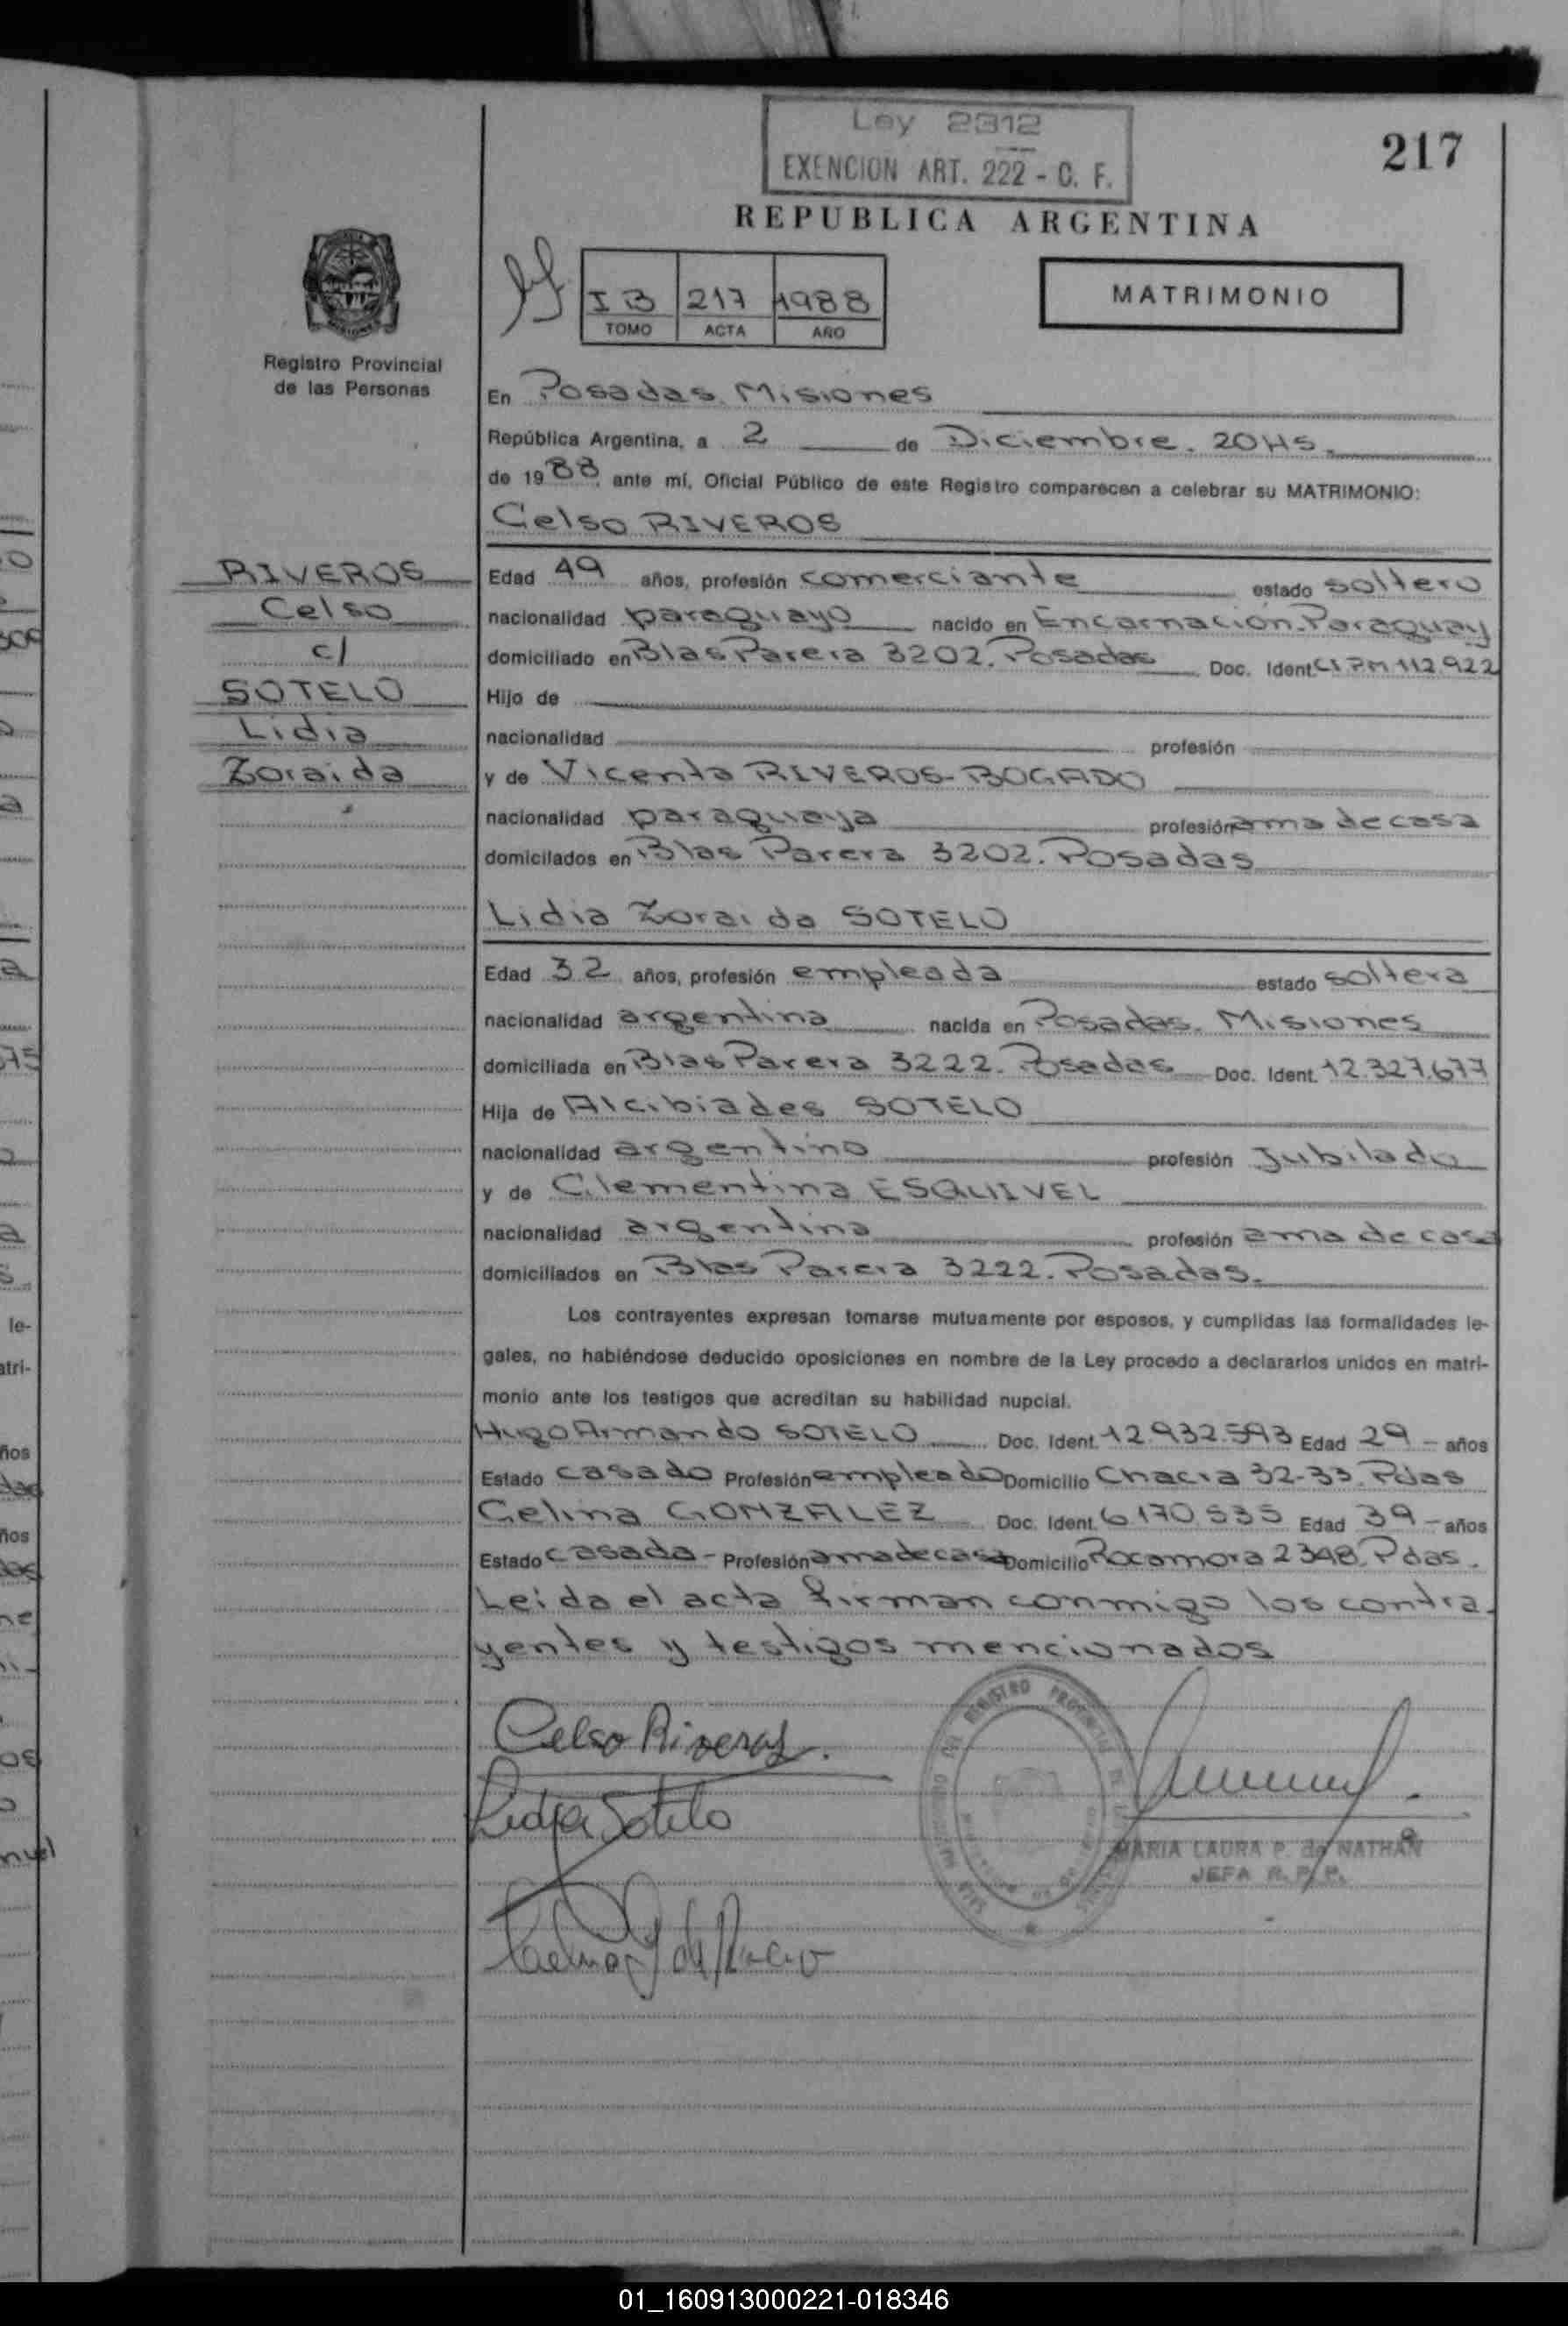 Ley 2312
EXENCION ART. 222 - C. F.
217
REPUBLICA ARGENTINA
I B 217 1988
TOMO ACTA AÑO
MATRIMONIO
Registro Provincial
de las Personas
RIVEROS
Celso
c/
SOTELO
Lidia
Zoraida
En Posadas. Misiones
República Argentina, a 2 de Diciembre. 20 Hs.
de 1988, ante mí, Oficial Público de este Registro comparecen a celebrar su MATRIMONIO:
Celso RIVEROS
Edad 49 años, profesión comerciante estado soltero
nacionalidad paraguayo nacido en Encarnación. Paraguay
domiciliado en Blas Parera 3202. Posadas Doc. Ident. CI PM 112.922
Hijo de
nacionalidad profesión
y de Vicenta RIVEROS-BOGADO
nacionalidad paraguaya profesión ama de casa
domicilados en Blas Parera 3202. Posadas
Lidia Zoraida SOTELO
Edad 32 años, profesión empleada estado soltera
nacionalidad argentina nacida en Posadas. Misiones
domiciliada en Blas Parera 3222. Posadas Doc. Ident. 12.327.677
Hija de Alcibiades SOTELO
nacionalidad argentino profesión Jubilado
y de Clementina ESQUIVEL
nacionalidad argentina profesión ama de casa
domiciliados en Blas Parera 3222. Posadas.
Los contrayentes expresan tomarse mutuamente por esposos, y cumplidas las formalidades le-
gales, no habiéndose deducido oposiciones en nombre de la Ley procedo a declararlos unidos en matri-
monio ante los testigos que acreditan su habilidad nupcial.
Hugo Armando SOTELO Doc. Ident. 12.932.593 Edad 29 - años
Estado casado Profesión empleado Domicilio Chacra 32-33. Pdas
Celina GONZALEZ Doc. Ident. 6.170.535 Edad 39 - años
Estado casada - Profesión ama de casa Domicilio Rocamora 2348. Pdas.
Leida el acta firman conmigo los contra-
yentes y testigos mencionados
Celso Riveros.
Lidia Sotelo
MARIA LAURA P. de NATHAN
JEFA R. P. P.
01_160913000221-018346